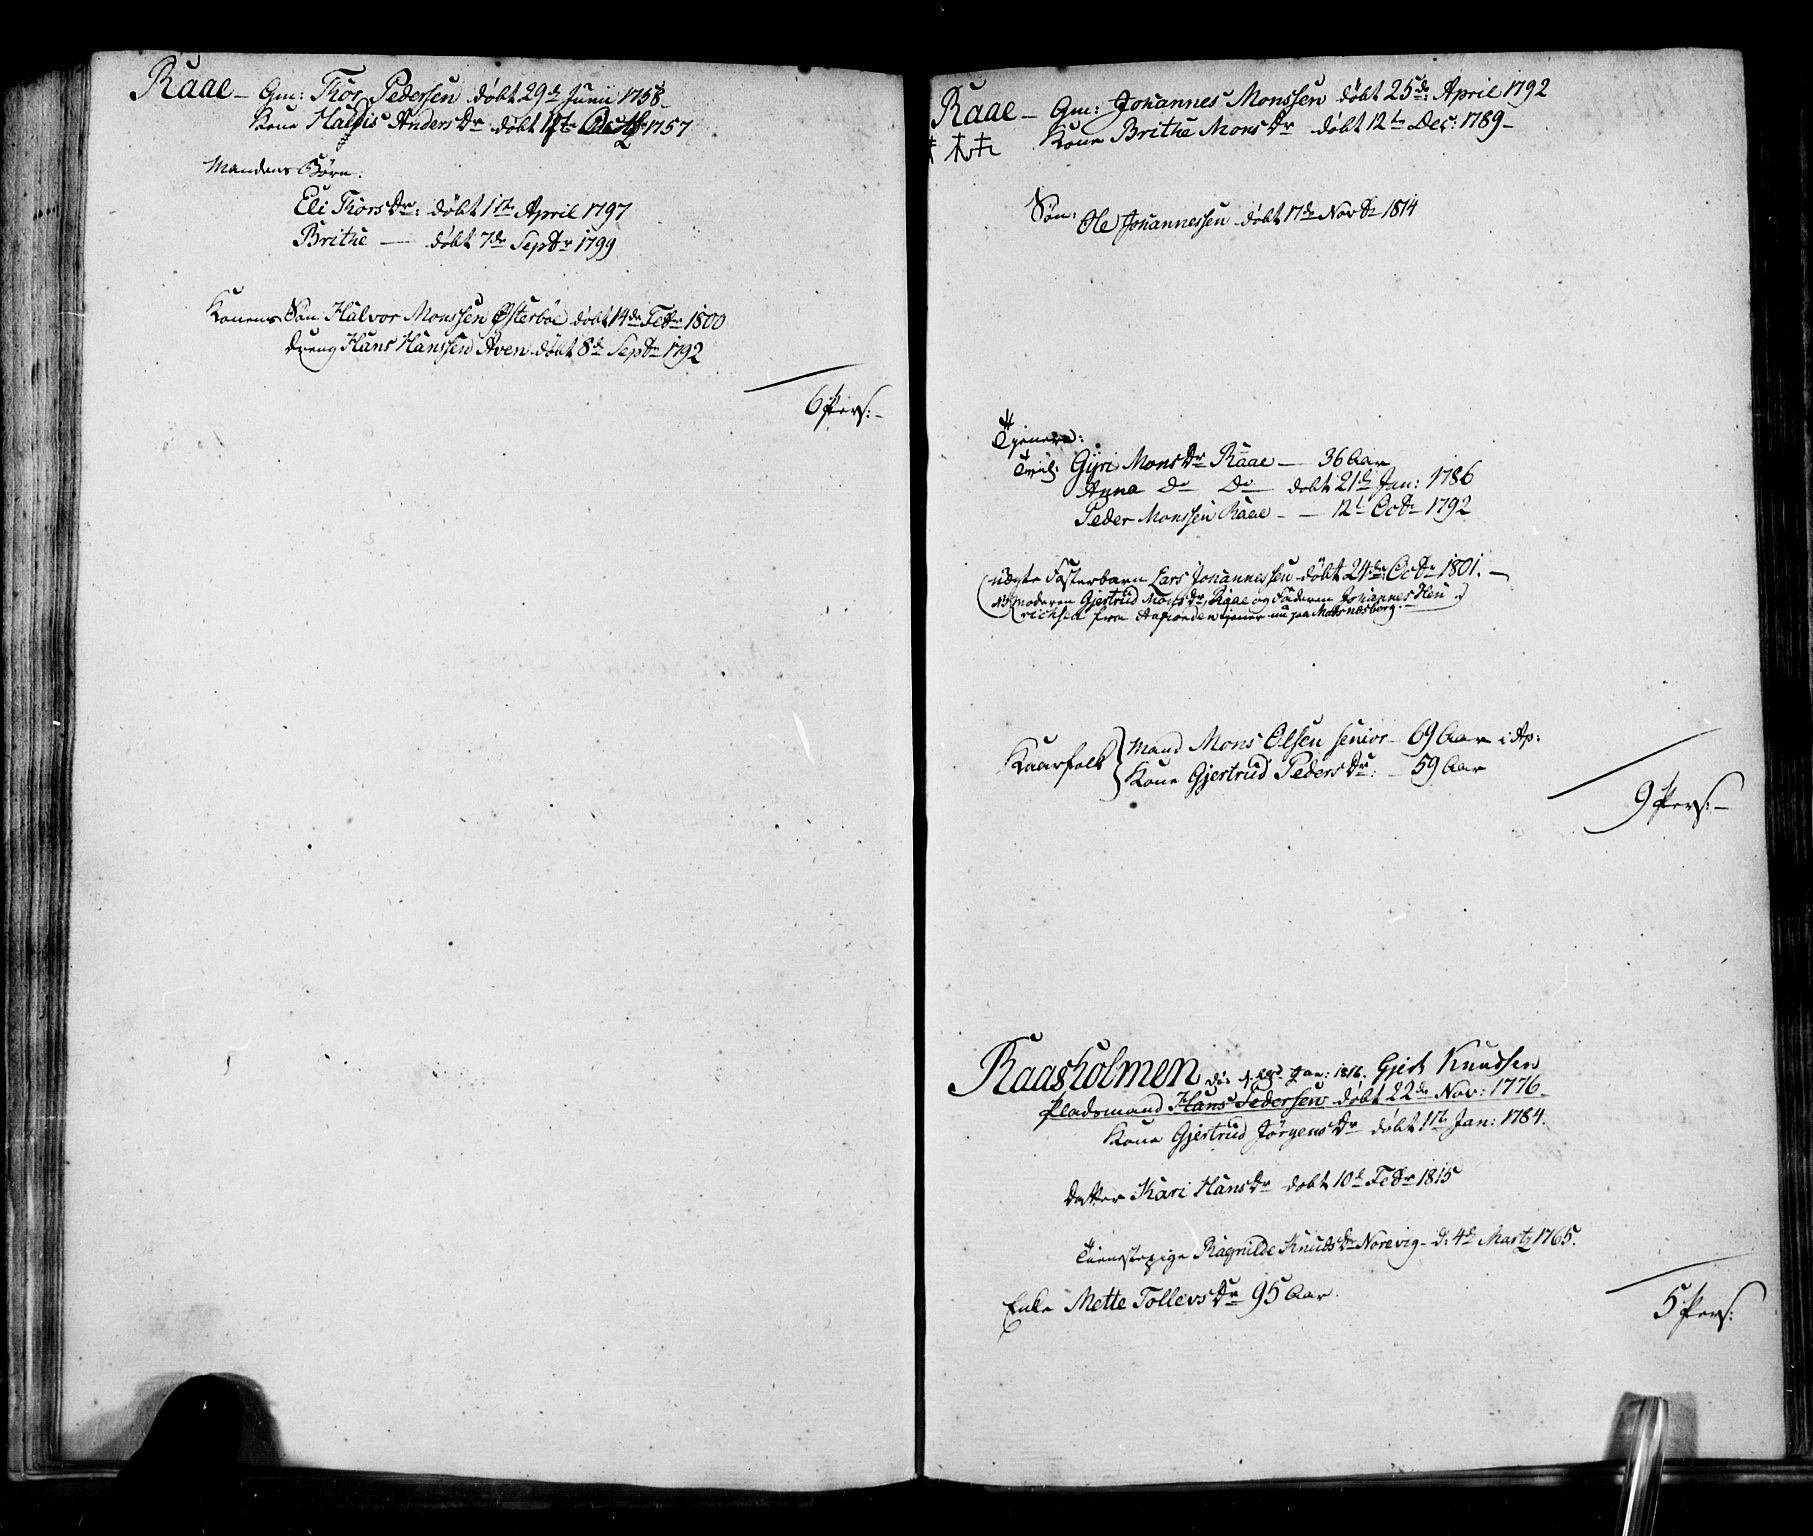 Raae – Gm: Thor Pedersen døbt 29de Junii 1758 –
Kone Haldis Anders Dr døbt 1757
Mandens Børn:
Eli Thors Dr: døbt 17de April 1797
Brithe — døbt 7de Septbr 1799
Konens Søn Halvor Monssen Østerbøe døbt 14de Febr 1800
Dreng Hans Hanssen Aven døbt 8de Septbr 1792
6 Pers: –
Raae – Gm: Johannes Monssen døbt 25de April 1792
Kone Brithe Mons Dr døbt 12te Dec: 1789 –
Søn:
Ole Johannessen døbt 17de Novbr 1814
Tjenere:
Gyri Mons Dr Raae — 36 Aar
Anna Do Do — døbt 21de Jan: 1786
Peder Monssen Raae – — 12te Octbr 1792
uægte Fosterbarn Lars Johannessen døbt 24de Octbr 1801. –
moderen Gjertrud Mons Dr Raae og Faderen Johannes Hen
richsen fra tjener nu paa
Kaarfolk Mand Mons Olsen senior – 69 Aar i Ap:
Kone Gjertrud Peders Dr: – 59 Aar
9 Pers: –
Raasholmen Jan: 1816. Gjert Knudsen
Pladsmand Hans Pedersen døbt 22de Nov: 1776 –
Kone Gjertrud Jørgens Dr døbt 17de Jan: 1784.
Datter Kari Hans Dr døbt 10de Febr 1815
Tienestepige Ragnilde Knuds Dr Norevig – d: 4de Martz 1765.
Enke Mette Tollevs Dr 95 Aar.
5 Pers: